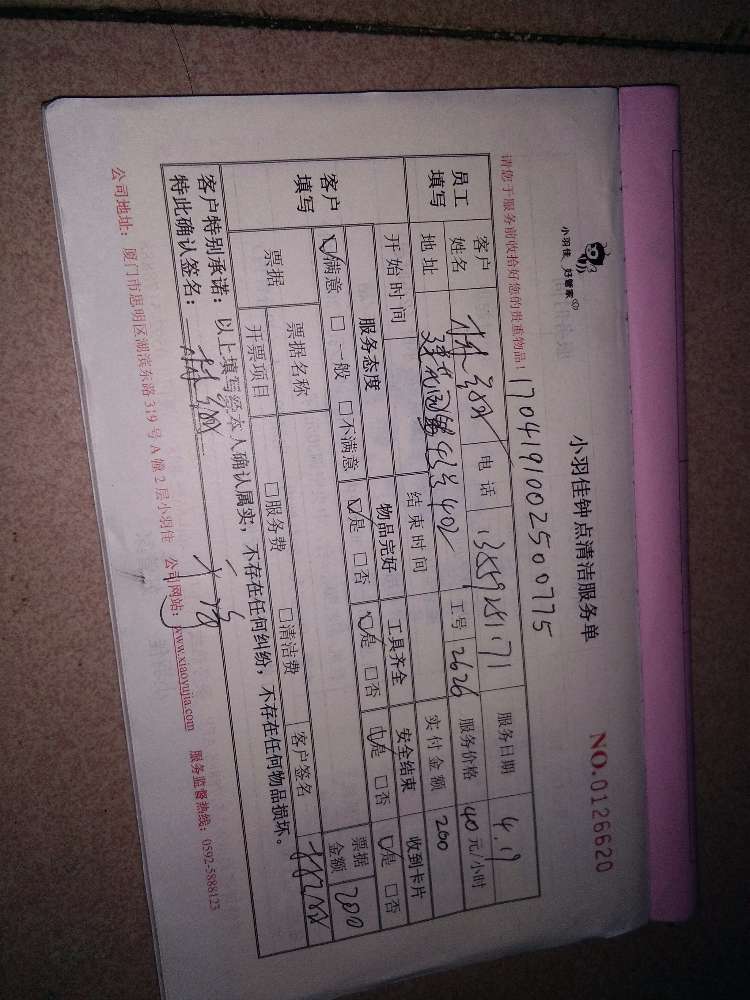 小羽佳 好管家
小羽佳钟点清洁服务单
NO.0126620
请您于服务前收拾好您的贵重物品!
1704191002500775
员工填写
客户姓名
电话
服务日期 4.19
地址
4号402
工号 2626
服务价格 40元/小时
开始时间
结束时间
实付金额 200
客户填写
服务态度 物品完好 工具齐全 安全结束 收到卡片
☑满意 □一般 □不满意 ☑是 □否 ☑是 □否 ☑是 □否 ☑是 □否
票据
票据名称
票据金额 200
开票项目 □服务费 □清洁费
客户签名
客户特别承诺:以上填写经本人确认属实,不存在任何纠纷,不存在任何物品损坏。
特此确认签名:
公司地址:厦门市思明区湖滨东路319号A幢2层小羽佳 公司网站:www.xiaoyujia.com 服务监督热线:0592-5888123